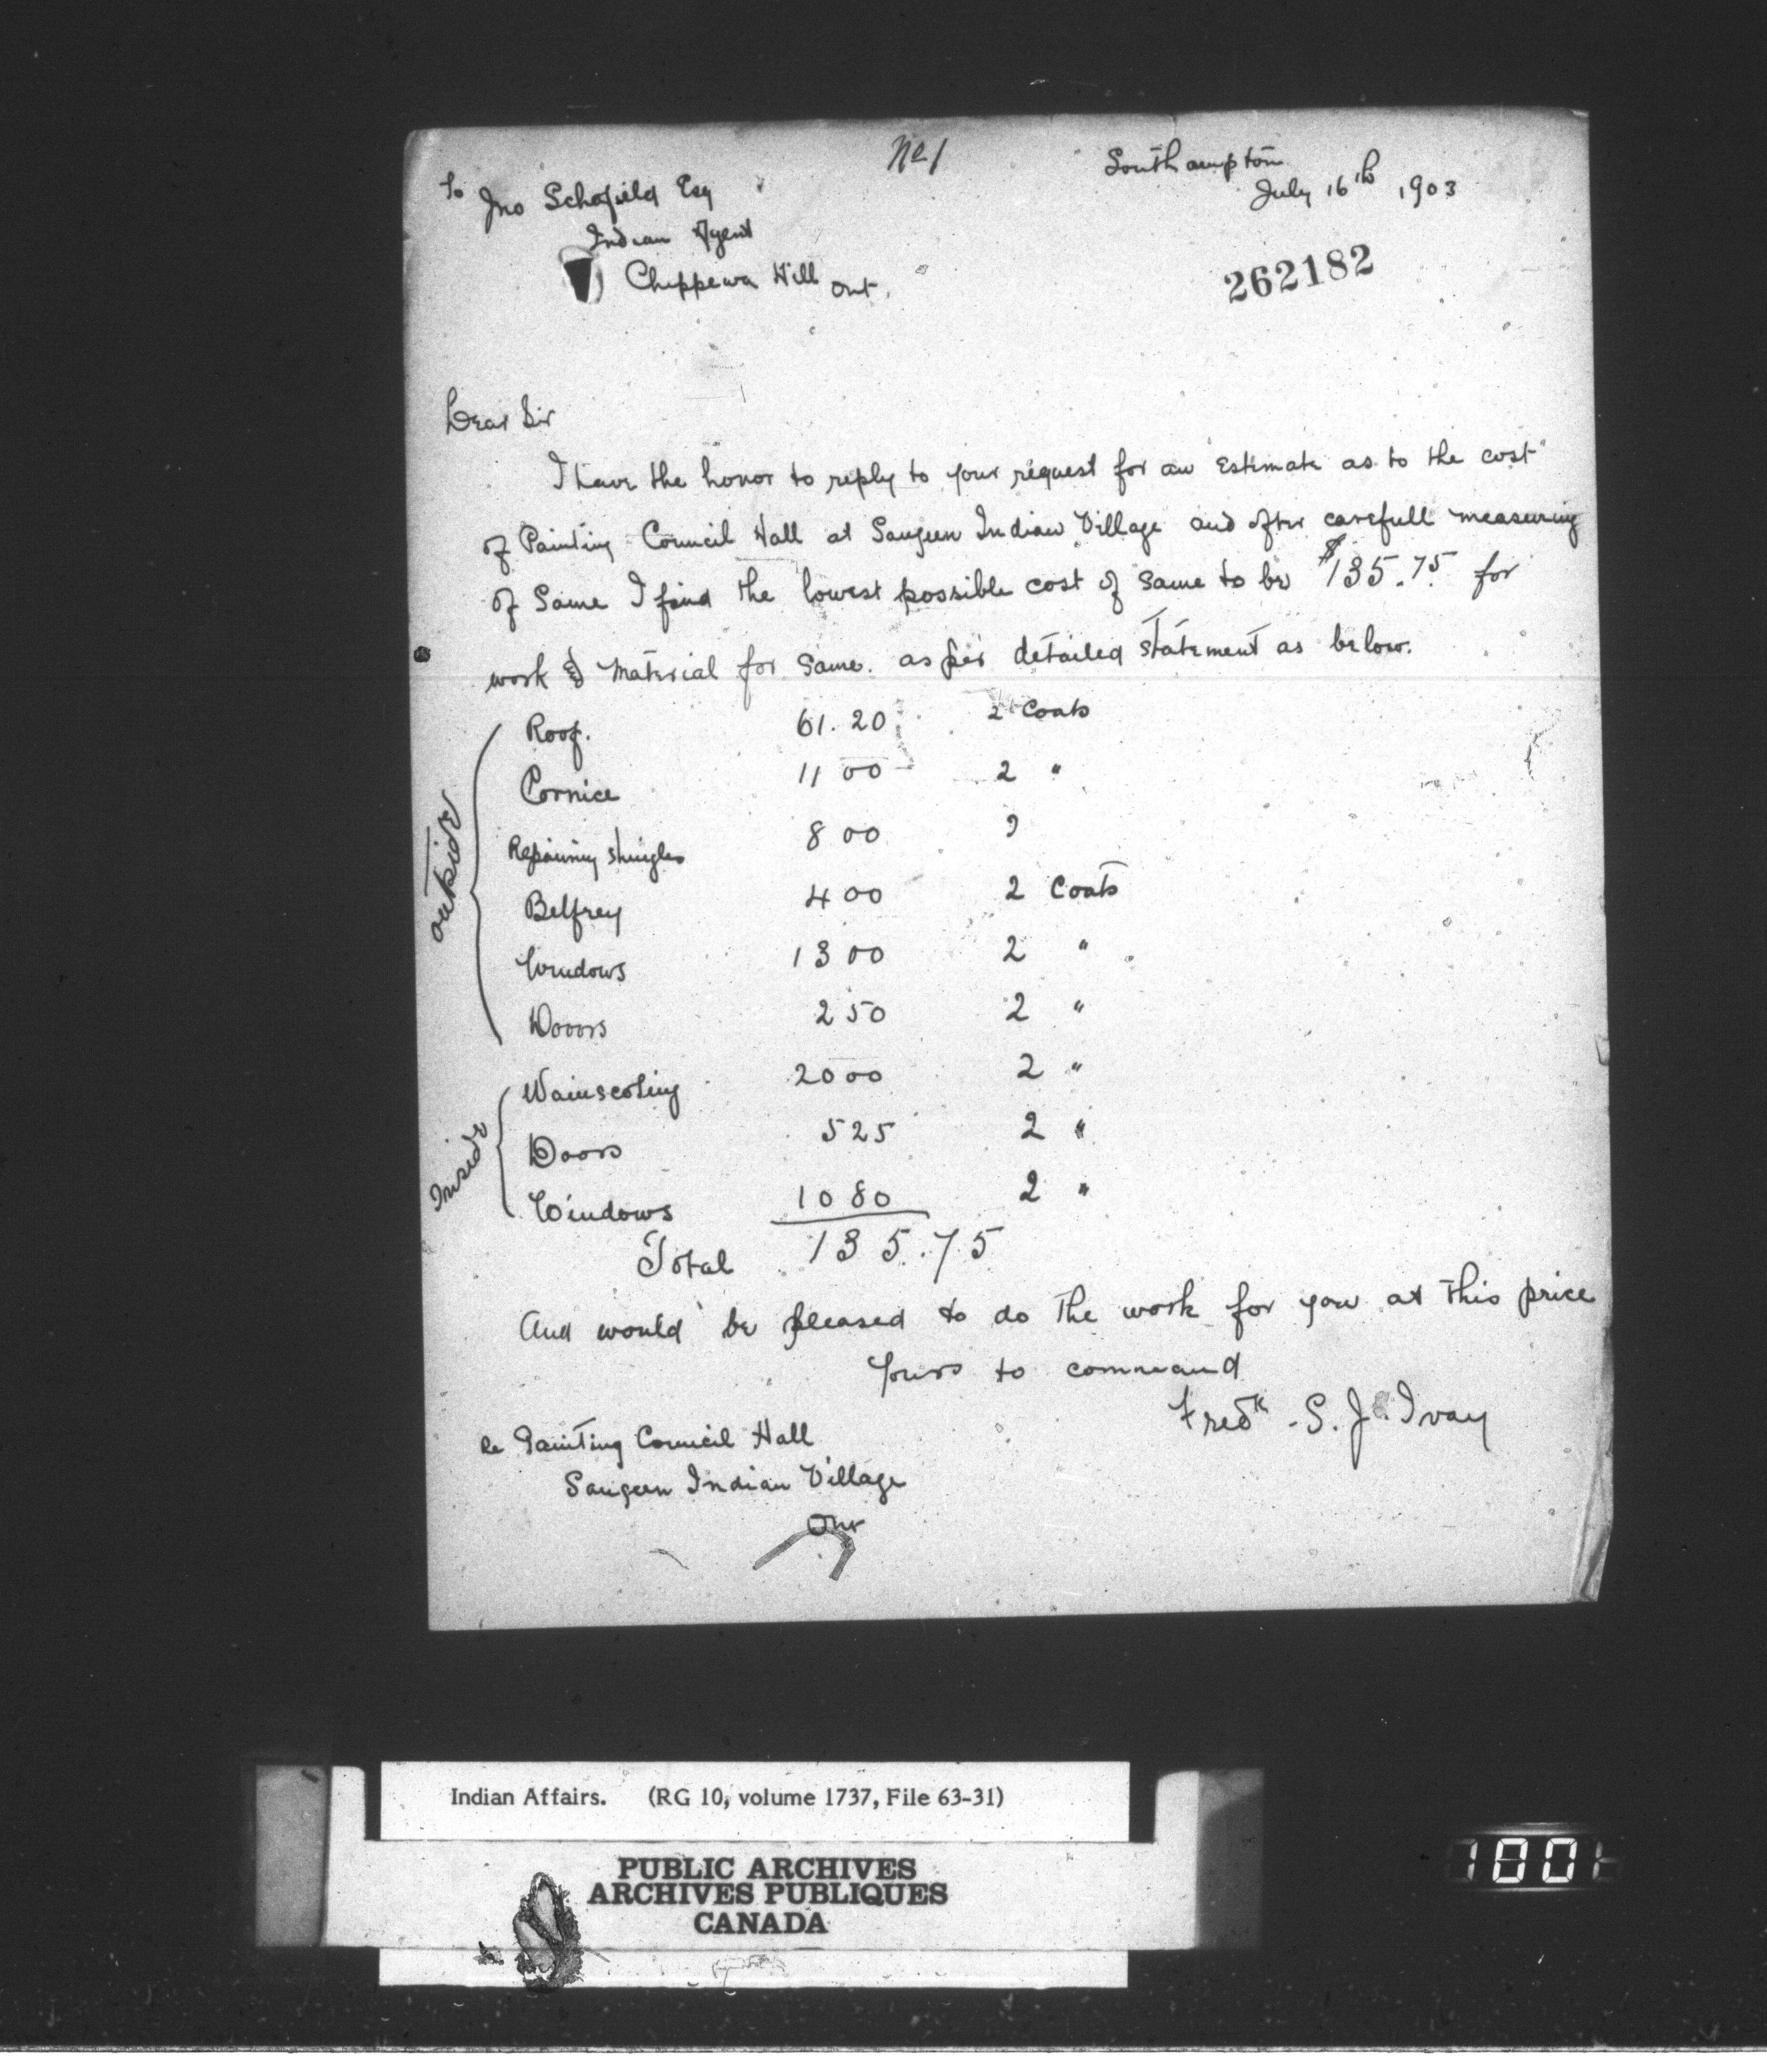 No 1
Southampton
July 16th 1903
To Jno Schofield Esq
Indian Agent
Chippewa Hill Ont.
262182
Dear Sir
I have the honor to reply to your request for an Estimate as to the cost
of Painting Council Hall at Saugeen Indian Village and after carefull measuring
of Same I find the lowest possible cost of same to be $135.75 for
work & material for same. as per detailed statement as below.
outside
Roof. 61.20 2 Coats
Cornice 11 00 2 "
Repairing shingles 8 00
Belfrey 4 00 2 Coats
Windows 13 00 2 "
Dooors 2 50 2 "
Inside
Wainscoting 20 00 2 "
Doors 5 25 2 "
Windows 10 80 2 "
Total 135.75
And would be pleased to do the work for you at this price
Yours to command
Fredk. S. J. Ivay
Re Painting Council Hall
Saugeen Indian Village
Ont
Indian Affairs. (RG 10, volume 1737, File 63-31)
PUBLIC ARCHIVES
ARCHIVES PUBLIQUES
CANADA